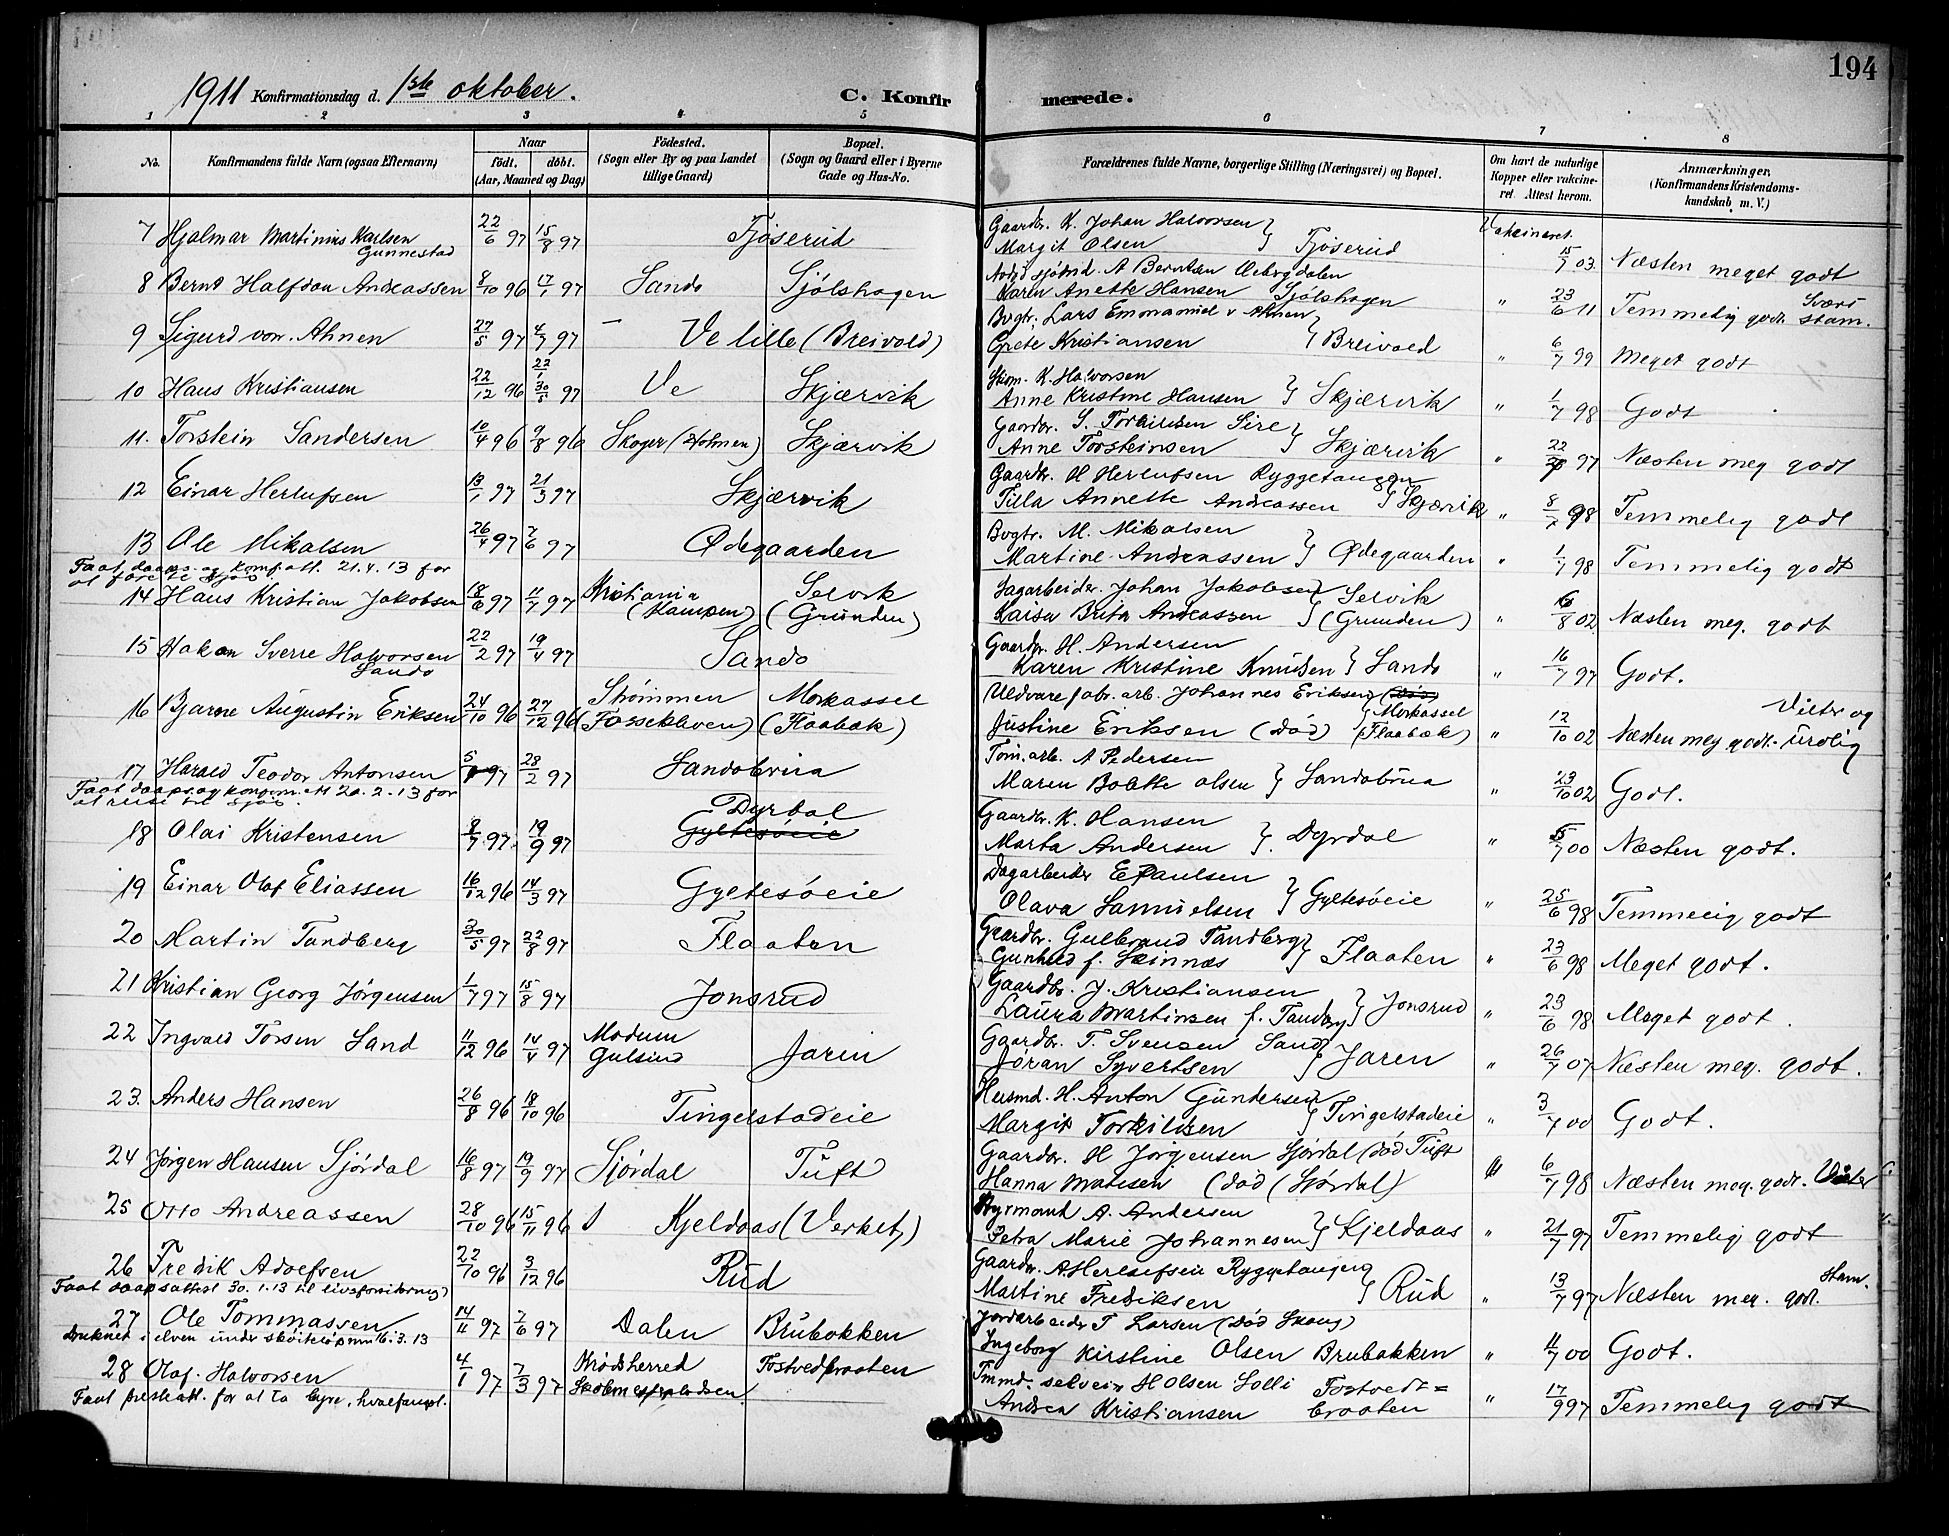 194
1911 Konfirmationsdag d. 1ste oktober.
C. Konfirmerede.
1 2 3 4 5 6 7 8
No. Konfirmandens fulde Navn (ogsaa Efternavn) Naar født. døbt. (Aar, Maaned og Dag) Fødested. (Sogn eller By og paa Landet tillige Gaard) Bopæl. (Sogn og Gaard eller i Byerne Gade og Hus-No. Forældrenes fulde Navne, borgerlige Stilling (Næringsvei) og Bopæl. Om havt de naturlige Kopper eller vakcineret. Attest herom. Anmærkninger, (Konfirmandens Kristendomskundskab m. V.)
7 Hjalmar Martinius Karlsen Gunnestad 22/6 97 15/8 97 Tjøserud Gaardbr. K. Johan Halvorsen Margit Olsen } Tjøserud Vakcineret. 15/7 03 Næsten meget godt
8 Bernt Halfdan Andreassen 8/10 96 17/1 97 Sando Sjølshagen A Berntsen Karen Anette Hansen Sjølshagen " 23/6 11 Temmelig godt. Svært stam.
9 Sigurd von. Ahnen 27/5 97 4/7 97 Ve lille (Breivold) Bogtr. Lars Emmanuel v Ahnen Grete Kristiansen } Breivold " 6/7 99 Meget godt
10 Hans Kristiansen 22/12 96 30/5 97 Ve Skjærvik K. Halvorsen Anne Kristine Hansen } Skjærvik " 1/7 98 Godt
11. Torstein Sandersen 10/4 96 9/8 96 Skoger (Holmen) Skjærvik Gaardbr. S. Torkildsen Sire Anne Torsteinsen } Skjærvik " 22/7 97 Næsten meg godt
12 Einar Herlufsen 13/1 97 21/3 97 Skjærvik Gaardbr. H Herlufsen Ryggetangen Tilla Annette Andreassen } Skjærvik " 8/7 98 Temmelig godt
13 Ole Mikalsen 26/4 97 7/6 97 Ødegaarden Bogtr. M. Mikalsen Martine Andreassen } Ødegaarden " 1/7 98 Temmelig godt
Faat daaps og konf. att. 21.4.13 for at fare til sjøs.
14 Hans Kristian Jakobsen 18/6 97 11/7 97 Kristiania (Kampen) Selvik (Grunden) Sagarbeider Johan Jakobsen Kaisa Brita Andreassen } Selvik (Grunden) " 6/8 02 Næsten meg. godt
15 Hakon Sverre Halvorsen Sando 22/2 97 19/4 97 Sando Gaardbr. H. Andersen Karen Kristine Knudsen } Sando " 16/7 97 Godt.
16 Bjarne Augustin Eriksen 24/10 96 27/12 96 Strømmen (Fossekleven) Morkassel (Flaabæk) Uldvarefabr. arb. Johannes Eriksen Justine Eriksen (død) } Morkassel (Flaabæk) " 12/10 02 Næsten meg godt. Vilter og urolig
17 Harald Teodor Antonsen 97 28/2 97 Sandobrua Tom. arb. A Pedersen Maren Bolette Olsen } Sandobrua " 23/10 02 Godt.
Faat daaps og konf. att 20.2.13 for at reise til sjøs.
18 Olai Kristensen 8/7 97 19/9 97 Dyrdal Gyltesøeie Gaardbr. K. Hansen Marta Andersen } Dyrdal " 5/7 00 Næsten godt.
19 Einar Olaf Eliassen 16/12 96 14/3 97 Gyltesøeie Dagarbeider E Paulsen Olava Samuelsen } Gyltesøeie " 25/6 98 Temmelig godt
20 Martin Tandberg 30/5 97 22/8 97 Flaaten Gaardbr. Gulbrand Tandberg Gunhild f. Steinnæs } Flaaten " 23/6 98 Meget godt.
21 Kristian Georg Jørgensen 1/7 97 15/8 97 Jonsrud Gaardbr. J. Kristiansen Laura Martinsen f. Tandberg } Jonsrud " 23/6 98 Meget godt.
22 Ingvald Torsen Sand 11/12 96 14/4 97 Modum Gulsrud Jaren Gaardbr. T. Svensen Sand Jøran Syvertsen } Jaren " 26/7 07 Næsten meg. godt.
23. Anders Hansen 26/8 96 18/10 96 Tingelstadeie Husmd. H. Anton Gundersen Margit Torkildsen } Tingelstadeie " 3/7 00 Godt.
24 Jørgen Hansen Sjørdal 16/8 97 19/9 97 Sjørdal Tuft Gaardbr. H Jørgensen Sjørdal (død Tuft Hanna Matisen (død (Sjørdal) " 6/7 98 Næsten meg. godt. Vilter
25 Otto Andreassen 28/10 96 15/11 96 Kjeldaas (Verket) Styrmand A. Andersen Petra Marie Johannesen } Kjeldaas " 21/7 97 Temmelig godt
26 Fredik Adolfsen 22/10 96 3/12 96 Rud Gaardbr. A Herlufsen Ryggetangen Martine Frediksen } Rud " 13/7 97 Næsten meg. godt. Stam.
Faat daapsattest 30.1.13 til livsforsikring)
27 Ole Tommassen 14/4 97 7/6 97 Dalen Brubakken Jordarbeider T Larsen (død Skoug) Ingeborg Kirstine Olsen Brubakken " 11/7 00 Godt.
druknet i elven under skøiteløpning 16.3.13
28 Olaf Halvorsen 4/1 97 7/3 97 Krødsherred Tostvedtbraaten H Olsen Solli Andrea Kristiansen Tostvedt= braaten " 17/9 97 Temmelig godt
Faat att. for at ta hyre, hvalfangst.